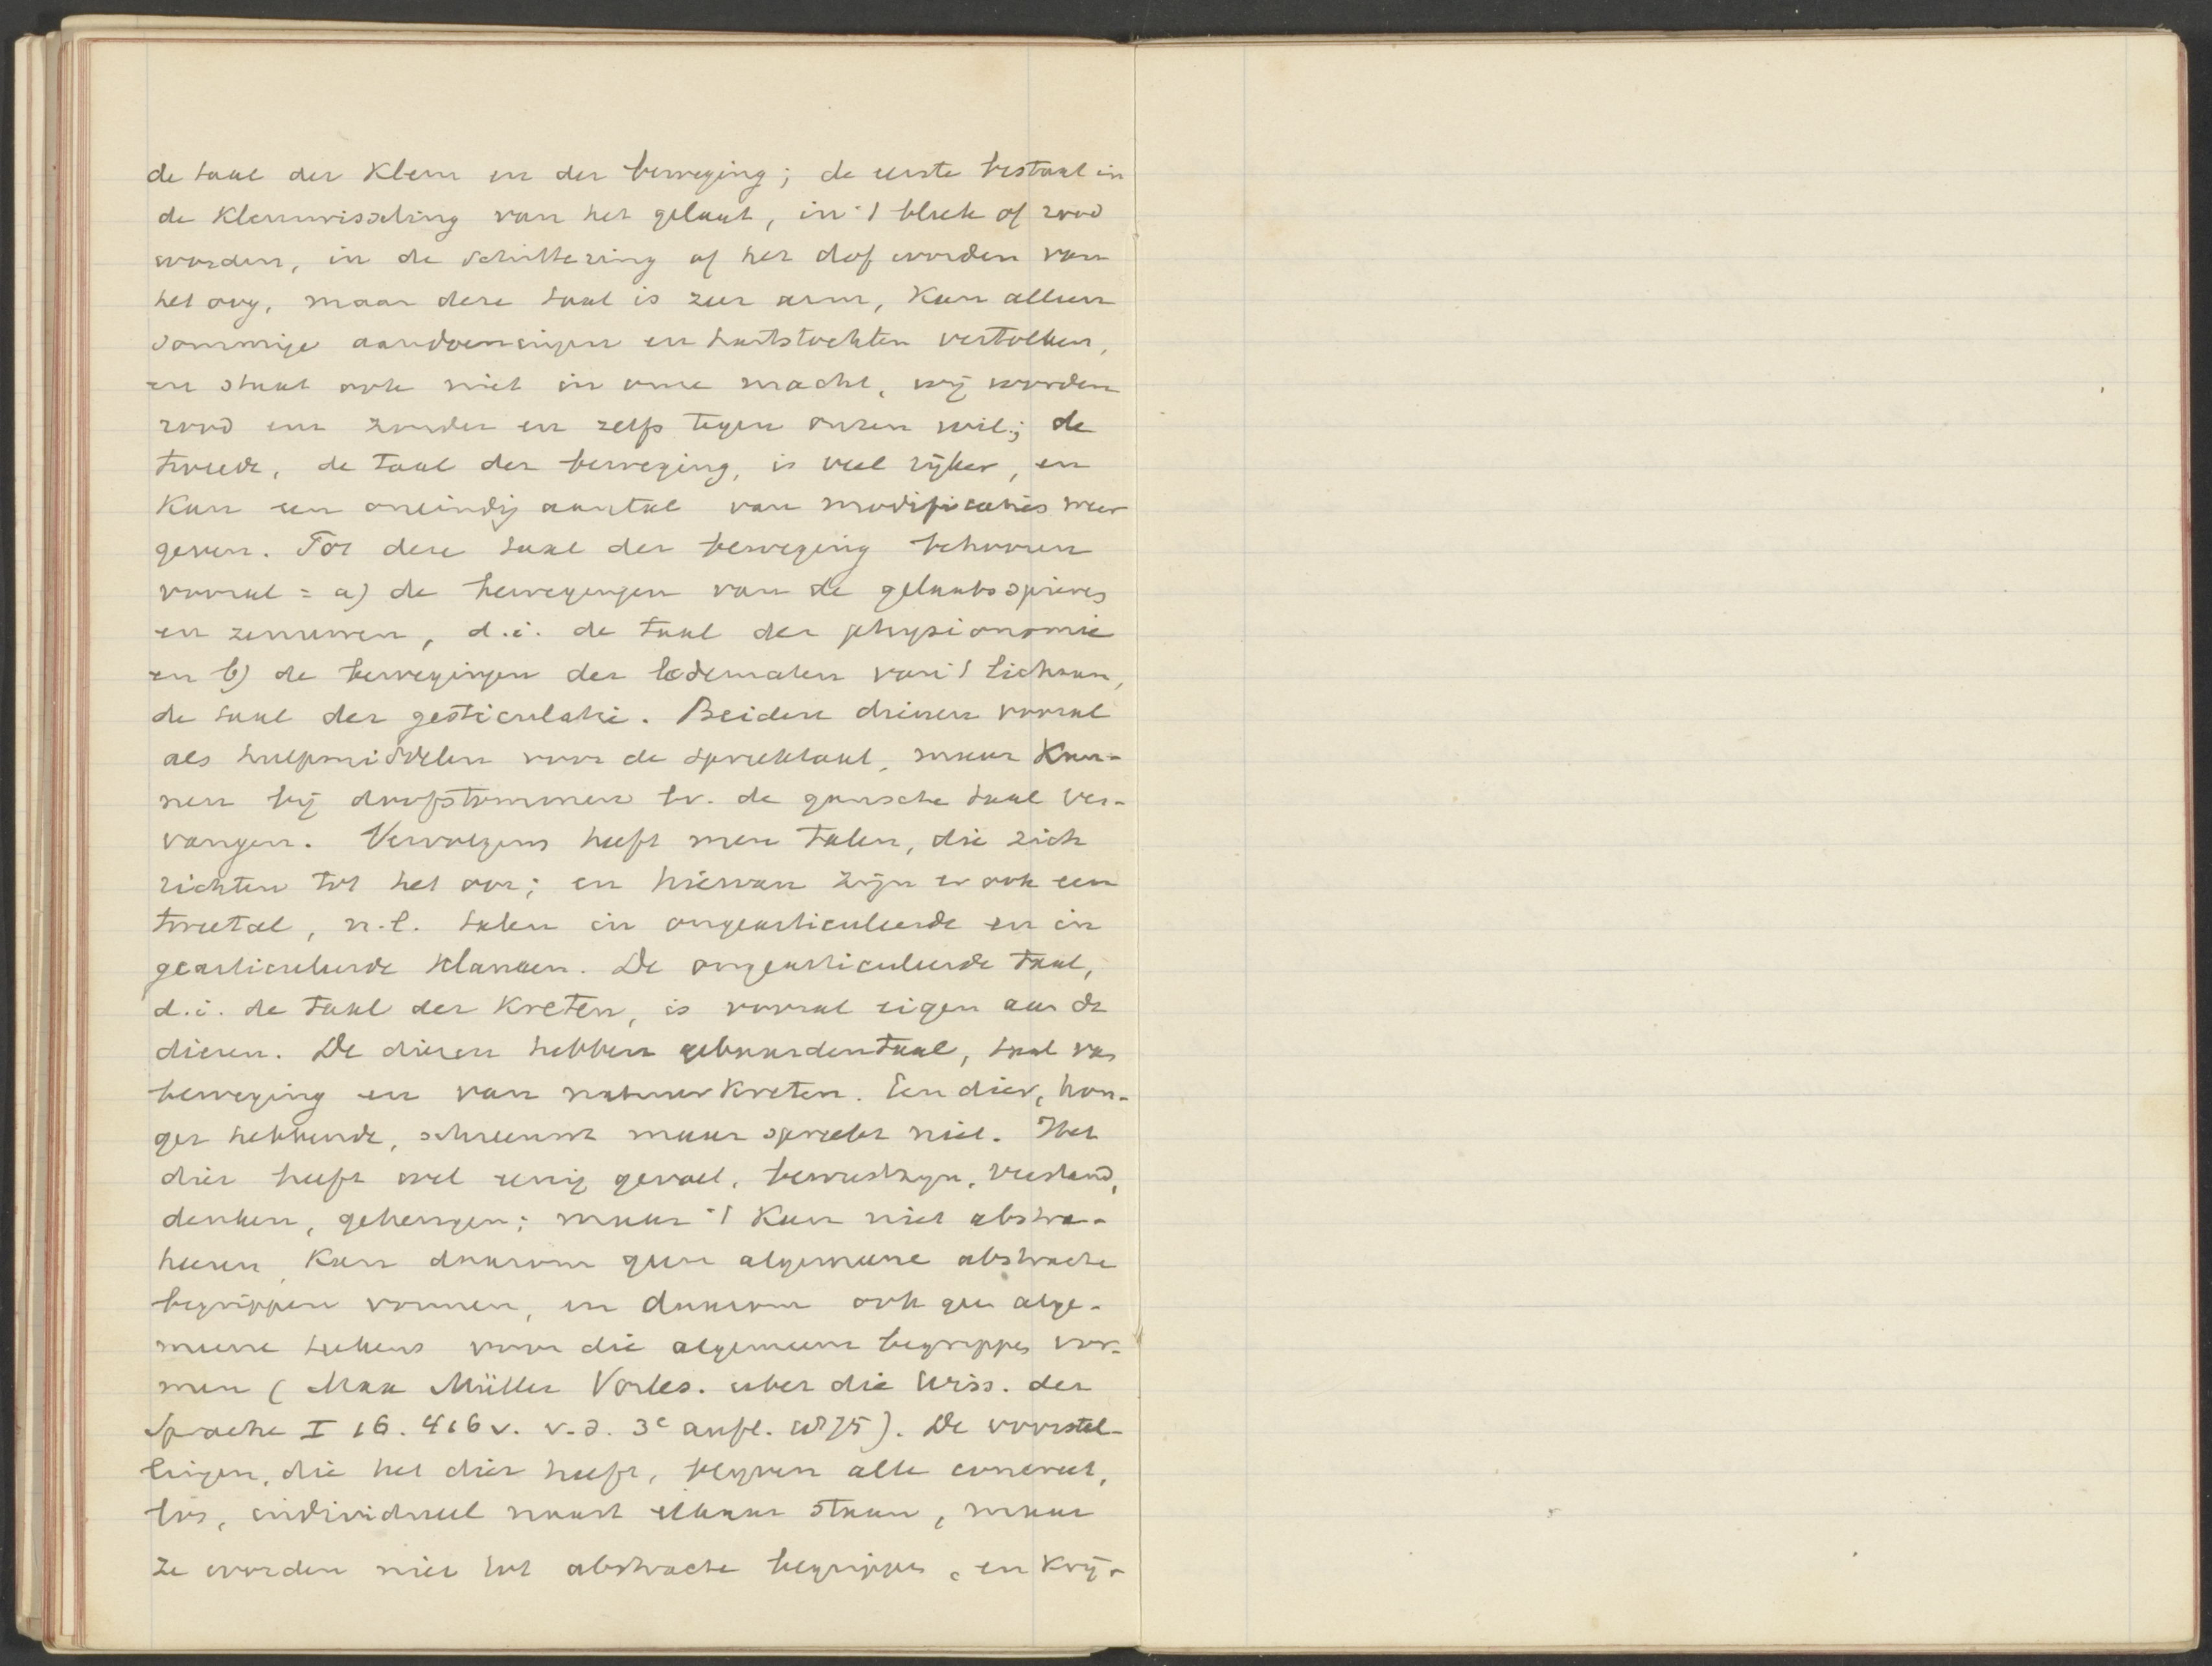 de taal der kleur en der beweging; de eerste bestaat in
de kleurwisseling van het gelaat, in 't bleek of rood
worden, in de schittering of het dof worden van
het oog, maar deze taal is zeer arm, kan alleen
sommige aandoeningen en hartstochten vertolken,
en staat ook niet in onze macht, wij worden
rood enz zonder en zelfs tegen onzen wil; de
tweede, de taal der beweging, is veel rijker, en
kan een oneindig aantal van modificaties weer
geven. Tot deze taal der beweging behooren
vooral = a) de bewegingen van de gelaatsspieren
en zenuwen, d.i. de taal der physionomie
en b) de bewegingen der ledematen van 't lichaam,
de taal der gesticulatie. Beiden dienen vooral
als hulpmiddelen voor de spreektaal, maar kun-
nen bij doofstommen bv. de gansche taal ver-
vangen. Vervolgens heeft men talen, die zich
richten tot het oor; en hiervan zijn er ook een
tweetal, n.l. talen in ongearticuleerde en in
gearticuleerde klanken. De ongearticuleerde taal,
d.i. de taal der kreten, is vooral eigen aan de
dieren. De dieren hebben gebaardentaal, taal van
beweging en van natuurkreten. Een dier, hon-
ger hebbende, schreeuwt maar spreekt niet. Het
dier heeft wel eenig gevoel, bewustzijn, verstand,
denken, geheugen; maar 't kan niet abstra-
heeren, kan daarom geen algemeene abstracte
begrippen vormen, en daarom ook geen alge-
meene teekens voor die algemeene begrippen vor-
men (Max Müller Vorles. uber die Wiss. der
Sprache I 16. 416 v. v.d. 3e aufl. 1875). De voorstel-
lingen, die het dier heeft, blijven alle concreet,
los, individueel naast elkaar staan, maar
ze worden niet tot abstracte begrippen, en krij-